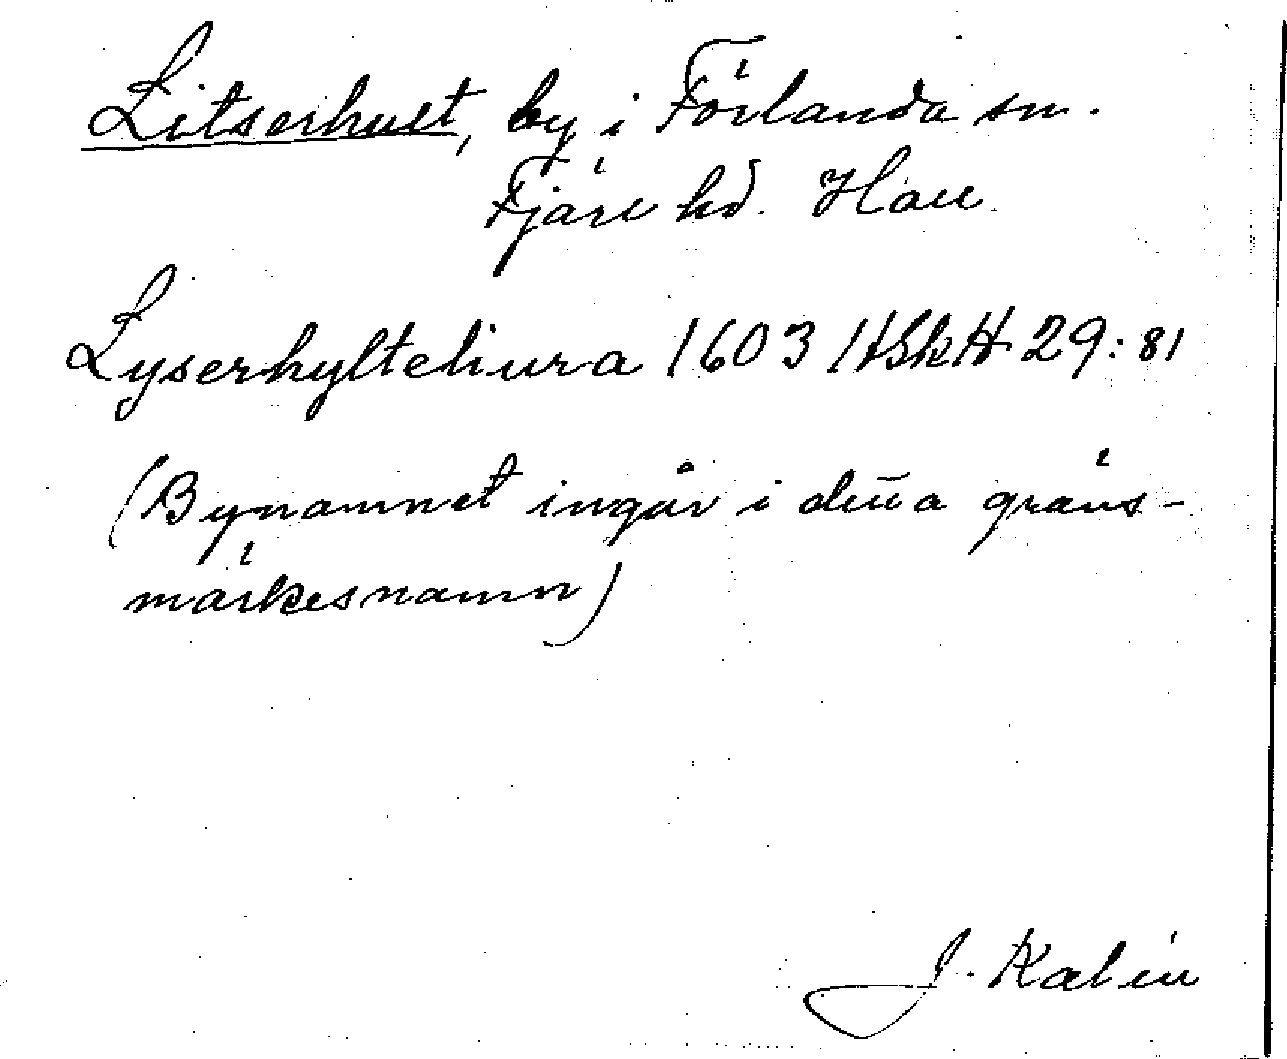 Litserhult, by i Förlanda sn.
Fjäre hd. Hall.
Lyserhylteliura 1603 HSkH 29:81
(Bynamnet ingår i den̄a gräns-
märkesnamn)
J. Kalén